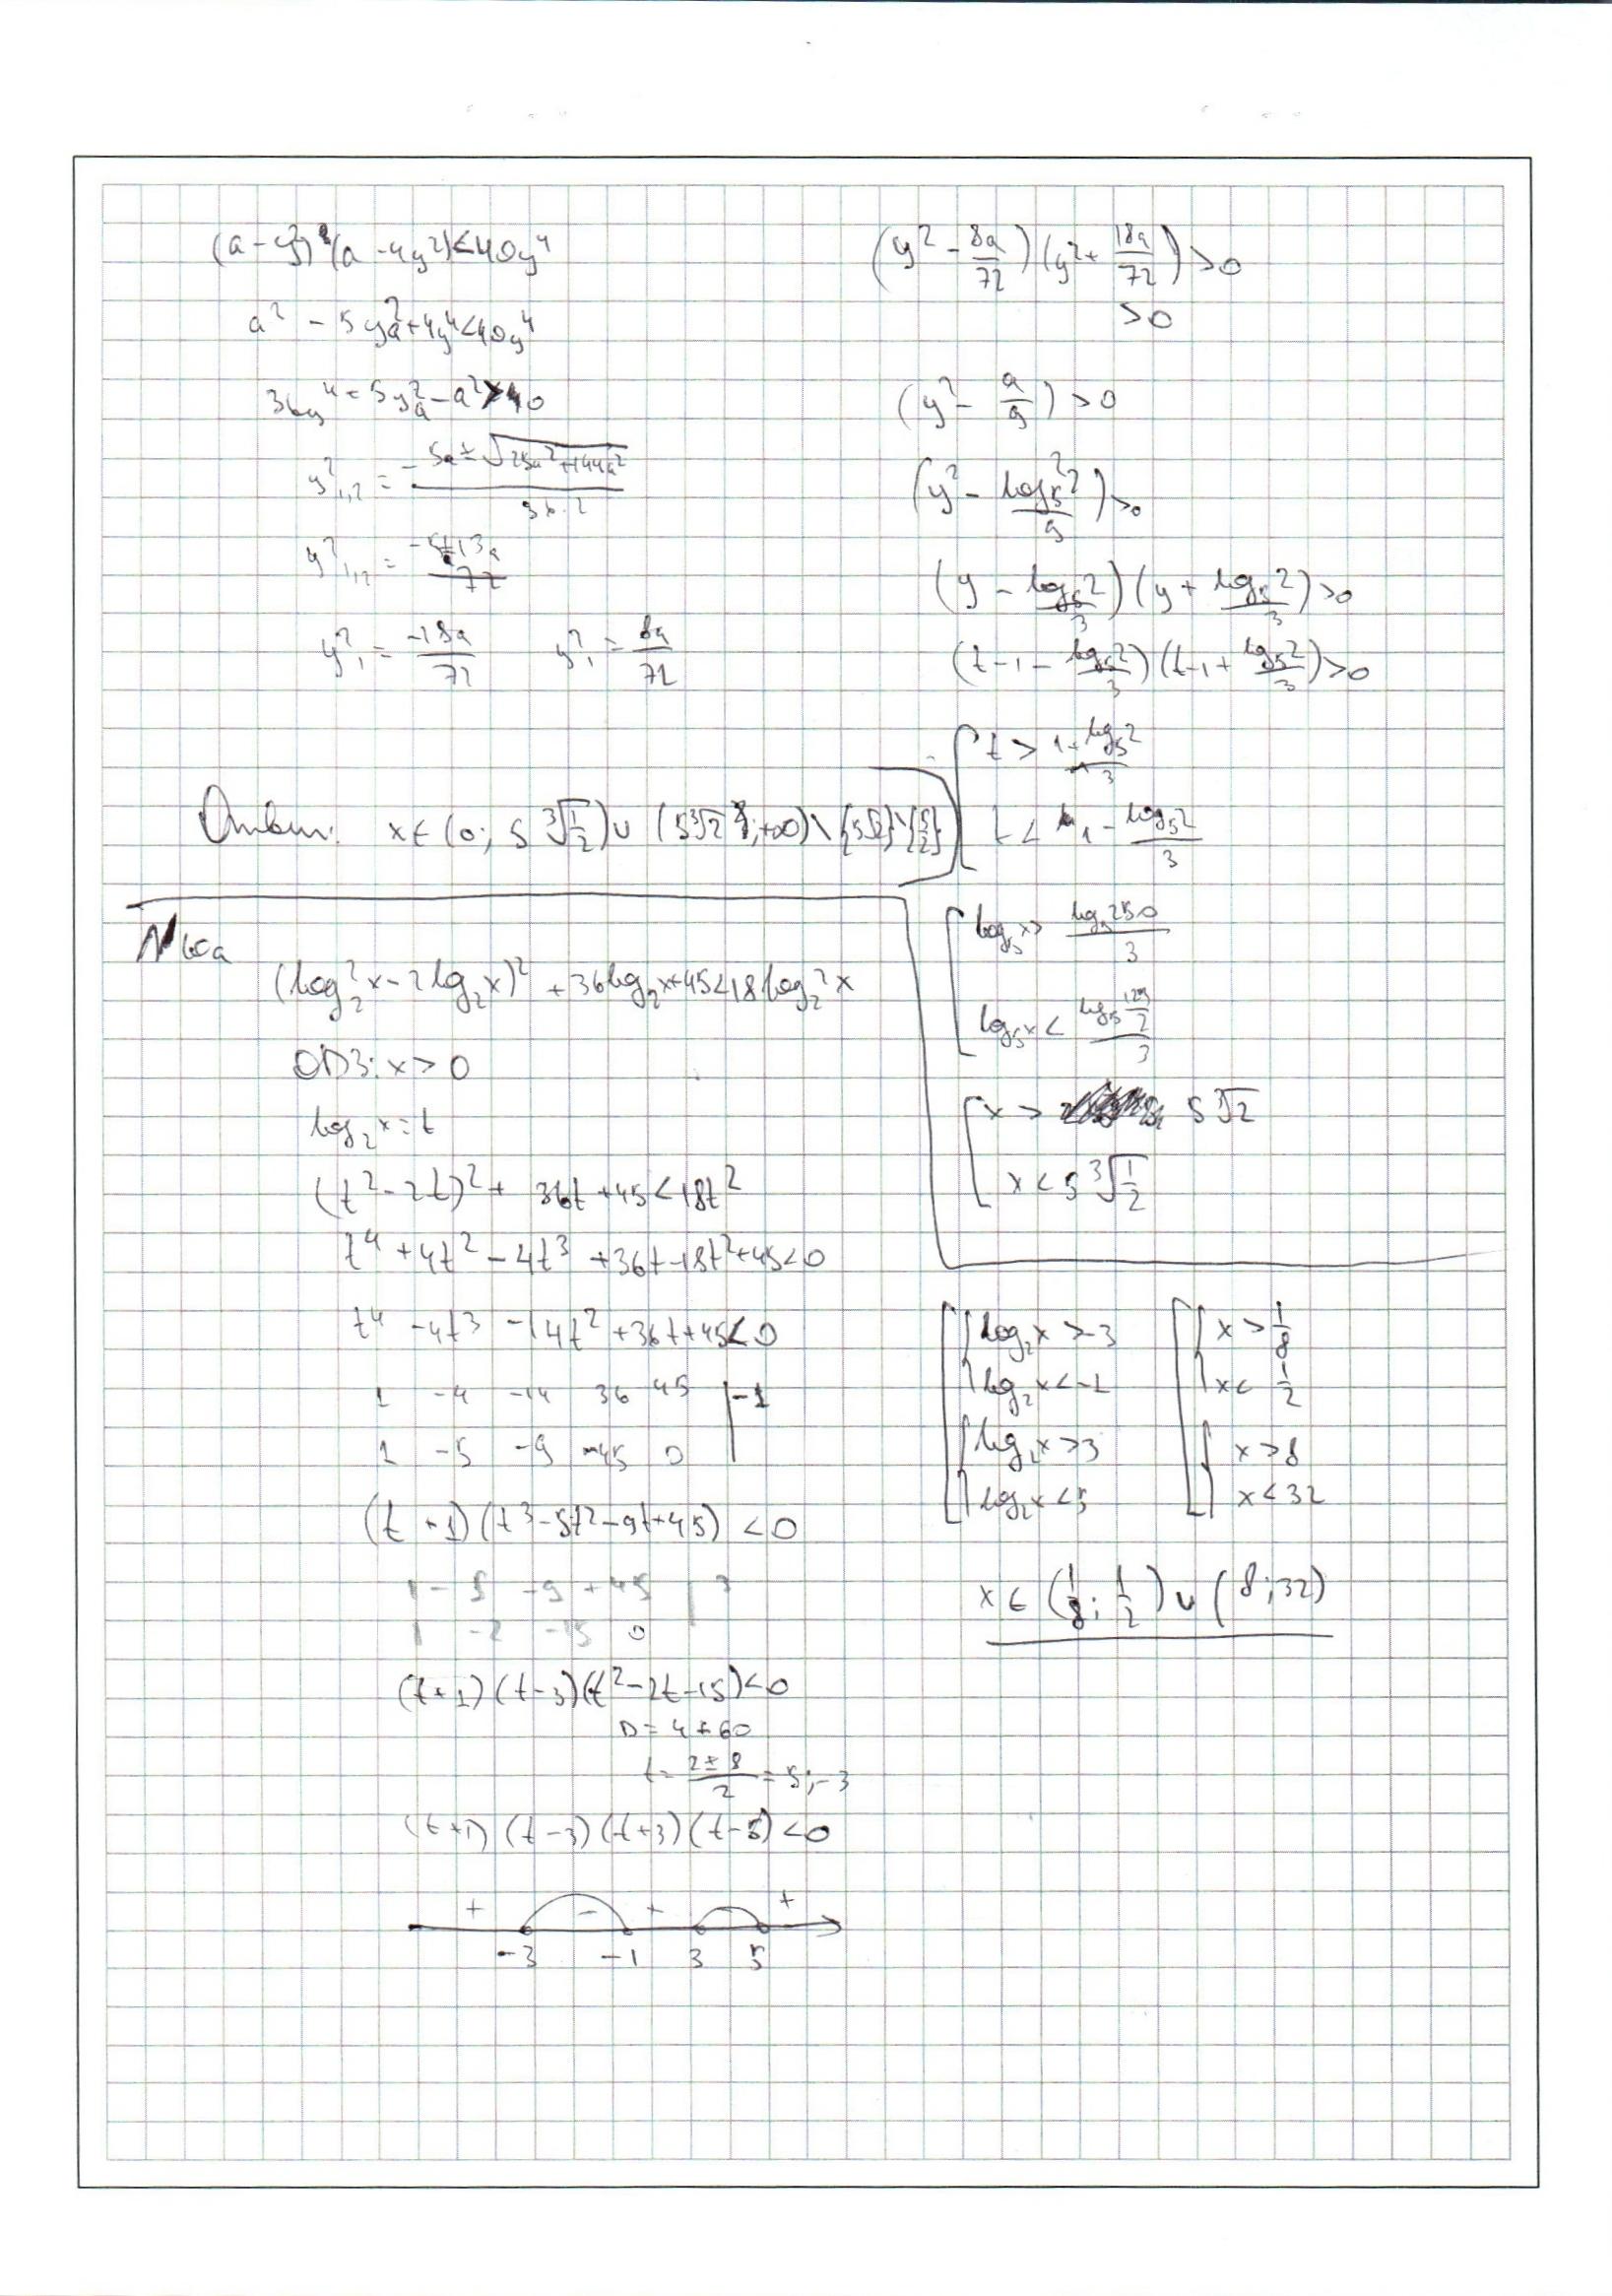 (a - y²)(a - 4y²) < 40y⁴
a² - 5y²a + 4y⁴ < 40y⁴
36y⁴ + 5y²a - a² > 0
y²₁,₂ = (-5a ± √(25a² + 144a²)) / (36·2)
y²₁,₂ = (-5 ± 13a) / 72
y²₁ = -18a/72 y²₁ = 8a/72
(y² - 8a/72)(y² + 18a/72) > 0
> 0
(y² - a/9) > 0
(y² - log₅²2/9) > 0
(y - log₅2/3)(y + log₅2/3) > 0
(t - 1 - log₅2/3)(t - 1 + log₅2/3) > 0
[ t > 1 + log₅2/3
t < 1 - log₅2/3
[ log₅x > log₅250/3
log₅x < log₅(125/2)/3
[ x > 5∛2
x < 5∛(1/2)
Ответ: x ∈ (0; 5∛(1/2)) ∪ (5∛2; +∞) \ {5√2} \ {5/2}
(log₂²x - 2log₂x)² + 36log₂x + 45 < 18log₂²x
ОДЗ: x > 0
log₂x = t
(t² - 2t)² + 36t + 45 < 18t²
t⁴ + 4t² - 4t³ + 36t - 18t² + 45 < 0
t⁴ - 4t³ - 14t² + 36t + 45 < 0
1 -4 -14 36 45 | -1
1 -5 -9 45 0
(t + 1)(t³ - 5t² - 9t + 45) < 0
1 -5 -9 +45 | 3
1 -2 -15 0
(t + 1)(t - 3)(t² - 2t - 15) < 0
D = 4 + 60
t = (2 ± 8)/2 = 5; -3
(t + 1)(t - 3)(t + 3)(t - 5) < 0
+ - + +
-3 -1 3 5
[ { log₂x > -3 [ { x > 1/8
log₂x < -1 x < 1/2
{ log₂x > 3 { x > 8
log₂x < 5 x < 32
x ∈ (1/8; 1/2) ∪ (8; 32)